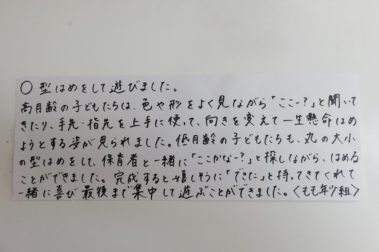 ○ 型はめをして遊びました。
高月齢の子どもたちは、色や形をよく見ながら「ここー?」と聞いて
きたり、手先・指先を上手に使って、向きを変えて一生懸命はめ
ようとする姿が見られました。低月齢の子どもたちも、丸の大小
の型はめをして、保育者と一緒に「ここかな-?」と探しながら、はめる
ことができました。完成すると嬉しそうに「できた」と持ってきてくれて
一緒に喜び最後まで集中して遊ぶことができました。〈もも年少組〉